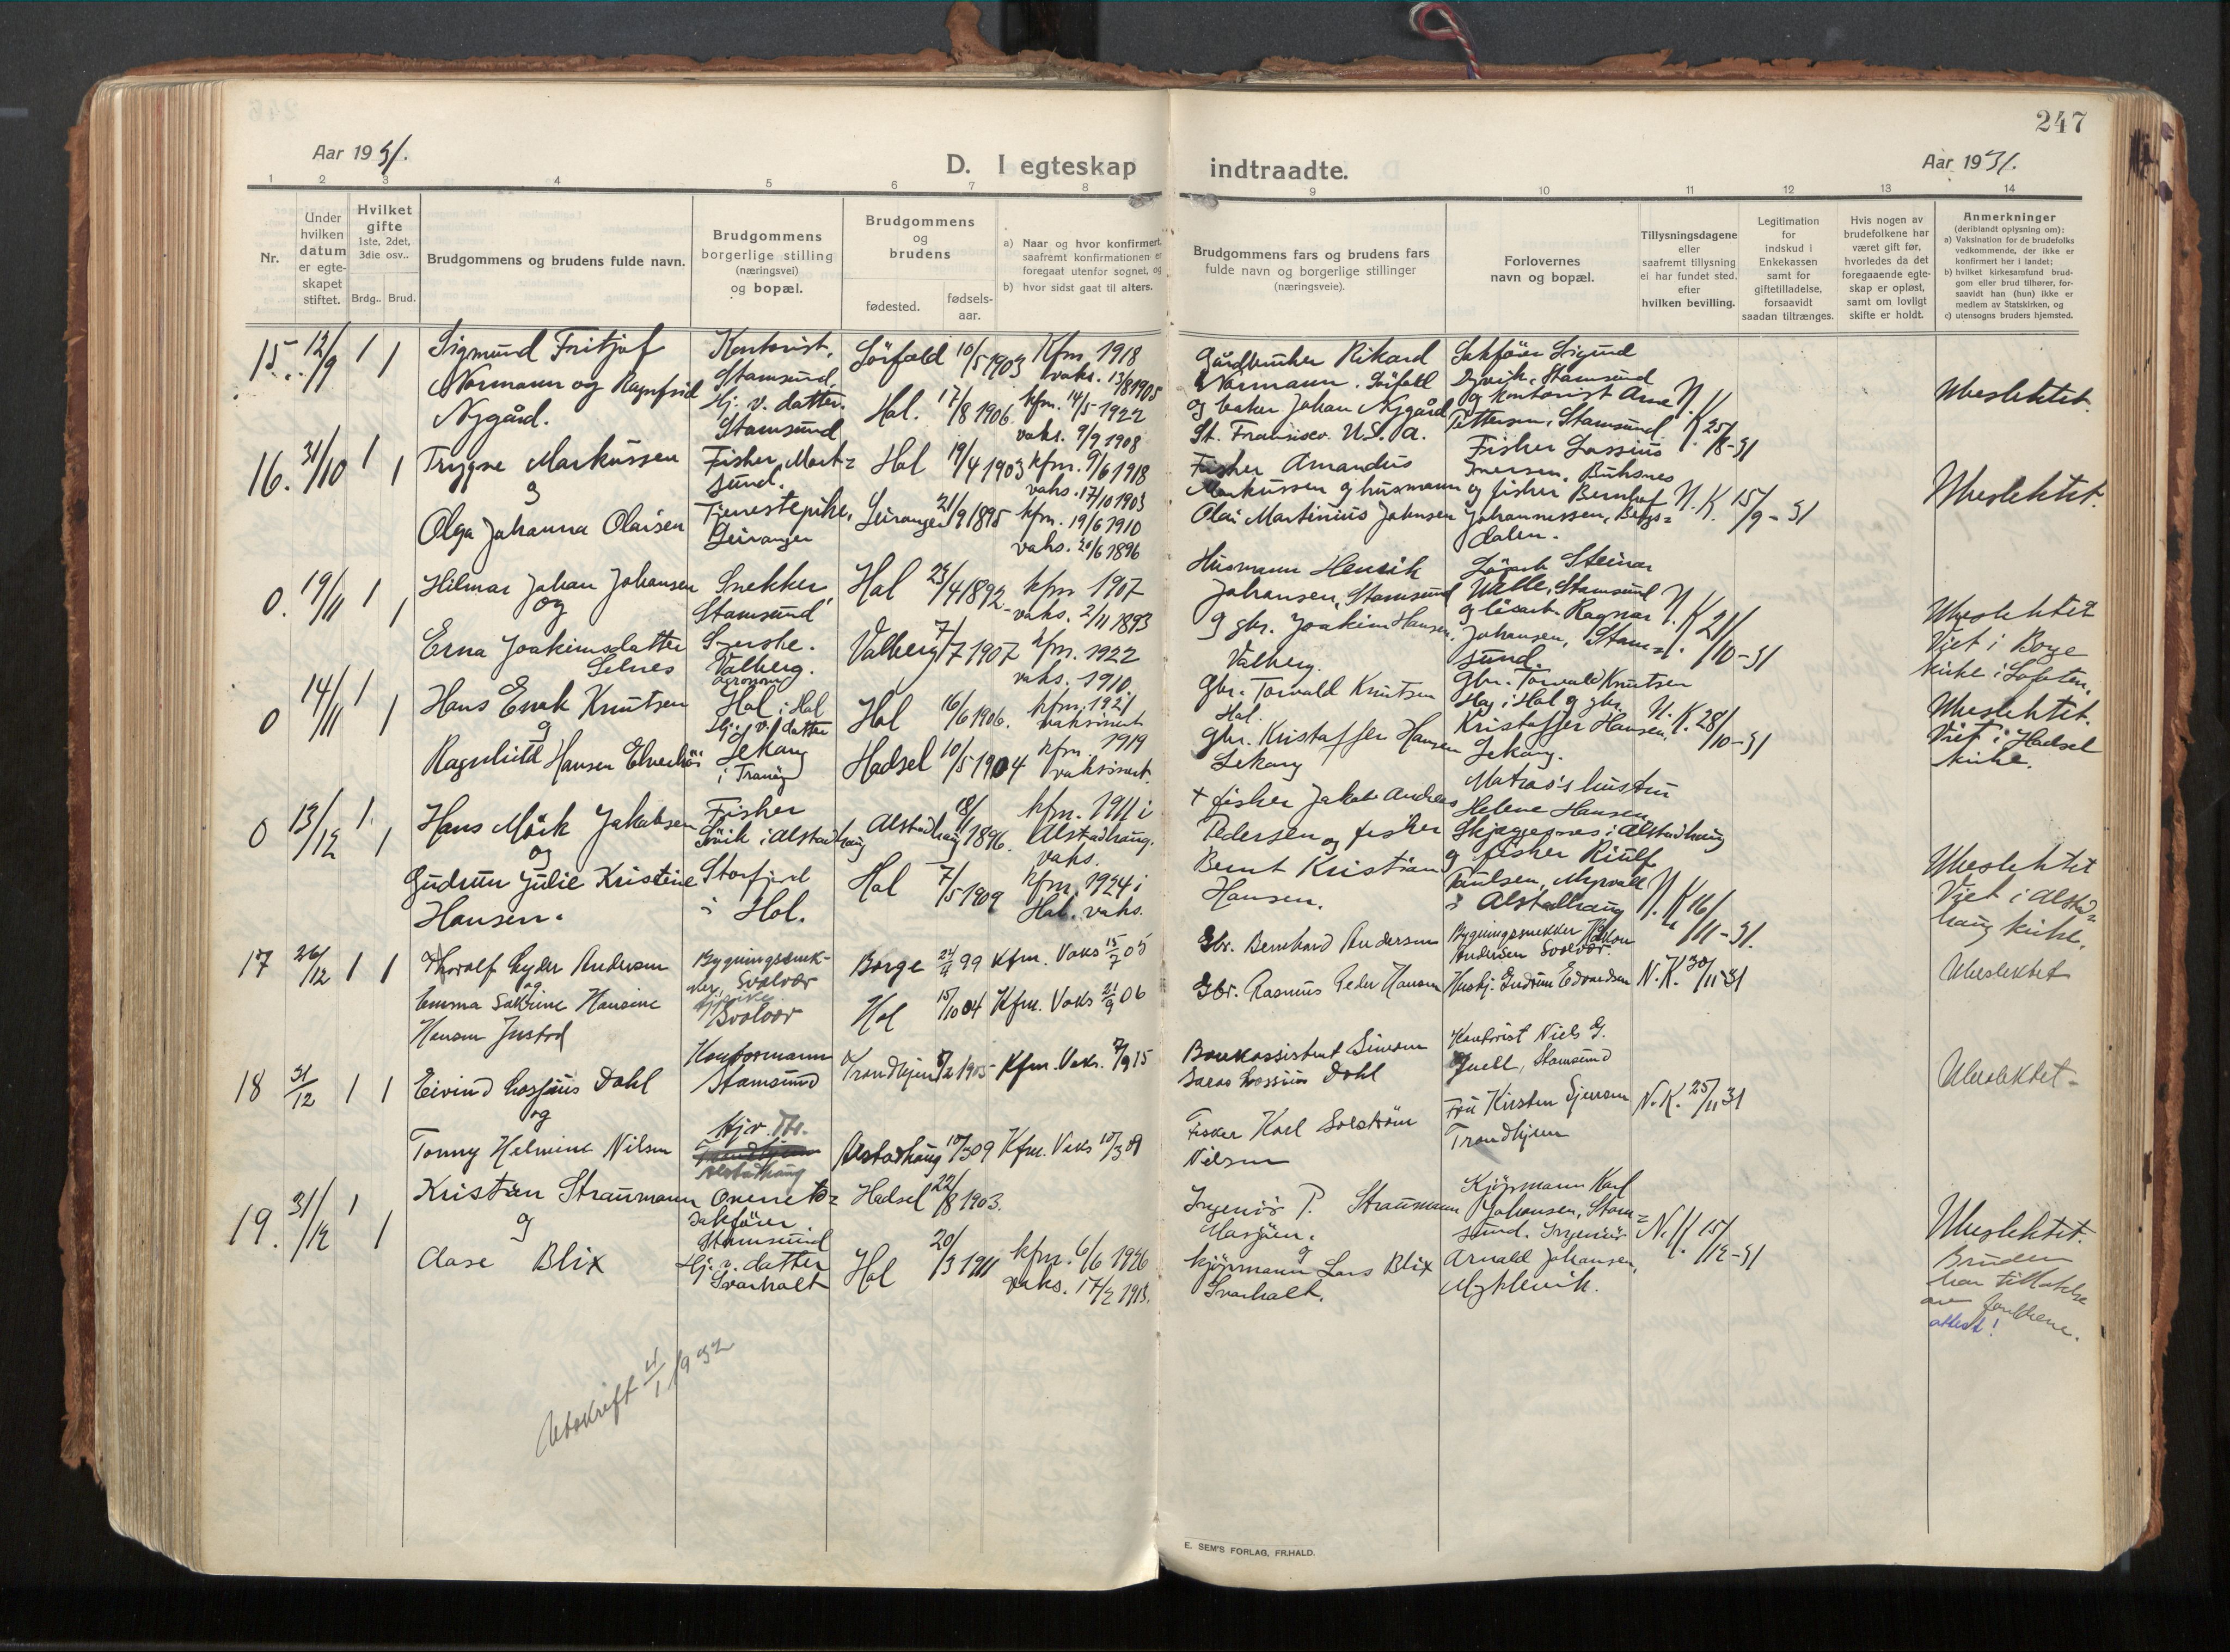 247
Aar 1931.
D. I egteskap indtraadte.
Aar 1931.
1 2 3 4 5 6 7 8 9 10 11 12 13 14
Nr.
Under
hvilken
datum
er egte-
skapet
stiftet.
Hvilket
gifte
1ste, 2det,
3die osv..
Brdg.. Brud.
Brudgommens og brudens fulde navn.
Brudgommens
borgerlige stilling
(næringsvei)
og bopæl.
Brudgommens
og
brudens
fødested.
fødsels-
aar.
a) Naar og hvor konfirmert,
saafremt konfirmationen er
foregaat utenfor sognet, og
b) hvor sidst gaat til alters.
Brudgommens fars og brudens fars
fulde navn og borgerlige stillinger
(næringsveie).
Forlovernes
navn og bopæl.
Tillysningsdagene
eller
saafremt tillysning
ei har fundet sted.
efter
hvilken bevilling.
Legitimation
for
indskud i
Enkekassen
samt for
giftetilladelse,
forsaavidt
saadan tiltrænges.
Hvis nogen av
brudefolkene har
været gift før,
hvorledes da det
foregaaende egte-
skap er opløst,
samt om lovligt
skifte er holdt.
Anmerkninger
(deriblandt oplysning om):
a) Vaksination for de brudefolks
vedkommende, der ikke er
konfirmert her i landet;
b) hvilket kirkesamfund brud-
gom eller brud tilhører, for-
saavidt han (hun) ikke er
medlem av Statskirken, og
c) utensogns bruders hjemsted.
15. 12/9 1 1
Sigmund Fritjof
Normann og Ragnfrid
Nygård.
Kontorist,
Stamsund,
Hj. v. datter.
Stamsund
Sörfold 10/5 1903 Kfm. 1918
vaks. 13/8 1905
Hol. 17/8 1906 kfm. 14/5 1922
vaks. 9/9 1908
Gårdbruker Rikard
Normann. Sörfold
og baker Johan Nygård
St. Fransisco. U.S.A.
Sakförer Sigurd
Dyvik, Stamsund
og kontorist Arne
Pettersen, Stamsund
N.K. 25/8-31
Ubeslektet.
16. 31/10 1 1
Trygve Markussen
og
Olga Johanna Olaisen
Fisker, Mort=
sund.
Tjenestepike,
Leiranger
Hol 19/4 1903 kfm. 9/6 1918
vaks. 17/10 1903
Leiranger 21/9 1895 kfm. 19/6 1910
vaks. 20/6 1896
Fisker Amandus
Markussen og husmann
Olai Martinius Johnsen
Fisker Lossius
Iversen, Buksnes
og fisker Bernhof
Johannessen, Bergs=
dalen.
N.K. 15/9-31
Ubeslektet.
0. 19/11 1 1
Hilmar Johan Johansen
og
Erna Joakimsdatter
Selnes
Snekker,
Stamsund
Syerske.
Valberg.
Hol 24/4 1892 kfm 1907
vaks. 2/11 1893
Valberg 7/7 1907 kfm. 1922
vaks. 1910.
Husmann Henrik
Johansen, Stamsund
og gbr. Joakim Hansen,
Valberg.
Steinar
Valle, Stamsund
og lösarb. Ragnar
Johansen, Stam=
sund.
N.K. 21/10-31
Ubeslektet
Viet i Borge
kirke i Lofoten.
0 14/11 1 1
Hans Enok Knutsen
og
Ragnhild Hansen Elvenes
agronom
Hol i Hol
Hj. v. datter
Lekang
i Tranöy
Hol 16/6 1906. kfm. 1921
vaksinert
Hadsel 10/5 1904 kfm. 1919
vaksinert.
Gbr. Torvald Knutsen
Hol.
gbr. Kristoffer Hansen
Lekang
Gbr. Torvald Knutsen
Hag i Hol og gbr.
Kristoffer Hansen,
Lekang.
N.K. 28/10-31
Ubeslektet.
Viet i Hadsel
kirke.
0 13/12 1. 1
Hans Mörk Jakobsen
og
Gudrun Julie Kristine
Hansen.
Fisker
Sövik i Alstadhaug
Storfjord
i Hol.
Alstadhaug 1896. kfm. 1911 i
Alstadhaug.
vaks.
Hol 7/5 1909 kfm. 1924 i
Hol. vaks.
+ fisker Jakob Andreas
Pedersen og fisker
Bernt Kristian
Hansen.
Matros's hustru
Helene Hansen,
Skjeggesnes i Alstadhaug
og fisker Riulf
Paulsen, Myrvoll
i Alstadhaug
N.K. 16/11-31.
Ubeslektet
Viet i Alstad=
haug kirke.
17 26/12 1 1
Thoralf Lyder Andersen
og
Emma Sakrine Hansine
Hansen Justad
Bygningssnek-
ker, Svolvær
Svolvær
Borge 24/4 99 Kfm. Vaks 15/7 05
Hol 15/10 04 Kfm. Vaks 21/9 06
Gbr. Bernhard Andersen
Gbr. Rasmus Peder Hansen
Bygningssnekker Håkon
Andersen Svolvær.
Husbj. Gudrun Edvardsen
N.K. 30/11 31
Ubeslektet
18 31/12 1 1
Eivind Lossius Dahl
og
Tonny Helmine Nilsen
Kontormann
Stamsund
Hjv. Th.
Alstadhaug
Trondhjem 1905 Kfm. Vaks. 7/9 15
Alstadhaug 10/3 09 Kfm. Vaks 10/3 09
Bankassistent Simon
Lossius Dahl
Fisker Karl Solström
Nilsen
Kontorist Niels G.
Juell, Stamsund
Frü Kirsten Syversen
Trondhjem
N.K. 25/11 31
Ubeslektet
19. 31/12 1 1
Kristian Straumann
og
Aase Blix
Overrets=
sakförer
Stamsund
Hj. v. datter
Svarholt
Hadsel 22/8 1903.
Hol 20/3 1911 kfm. 6/6 1926
vaks. 17/2 1913.
Ingeniör P. Straumann
Mosjöen.
og
kjöpmann Lars Blix
Svarholt.
Kjöpmann Karl
Johansen, Stam=
sund. Ingeniör
Arnold Johansen,
Myklevik.
N.K. 15/12-31
Ubeslektet.
Bruden
har tillatelse
av foreldrene.
attest!
Utskrift 4/1 1932
E. SEM'S FORLAG, FR.HALD.